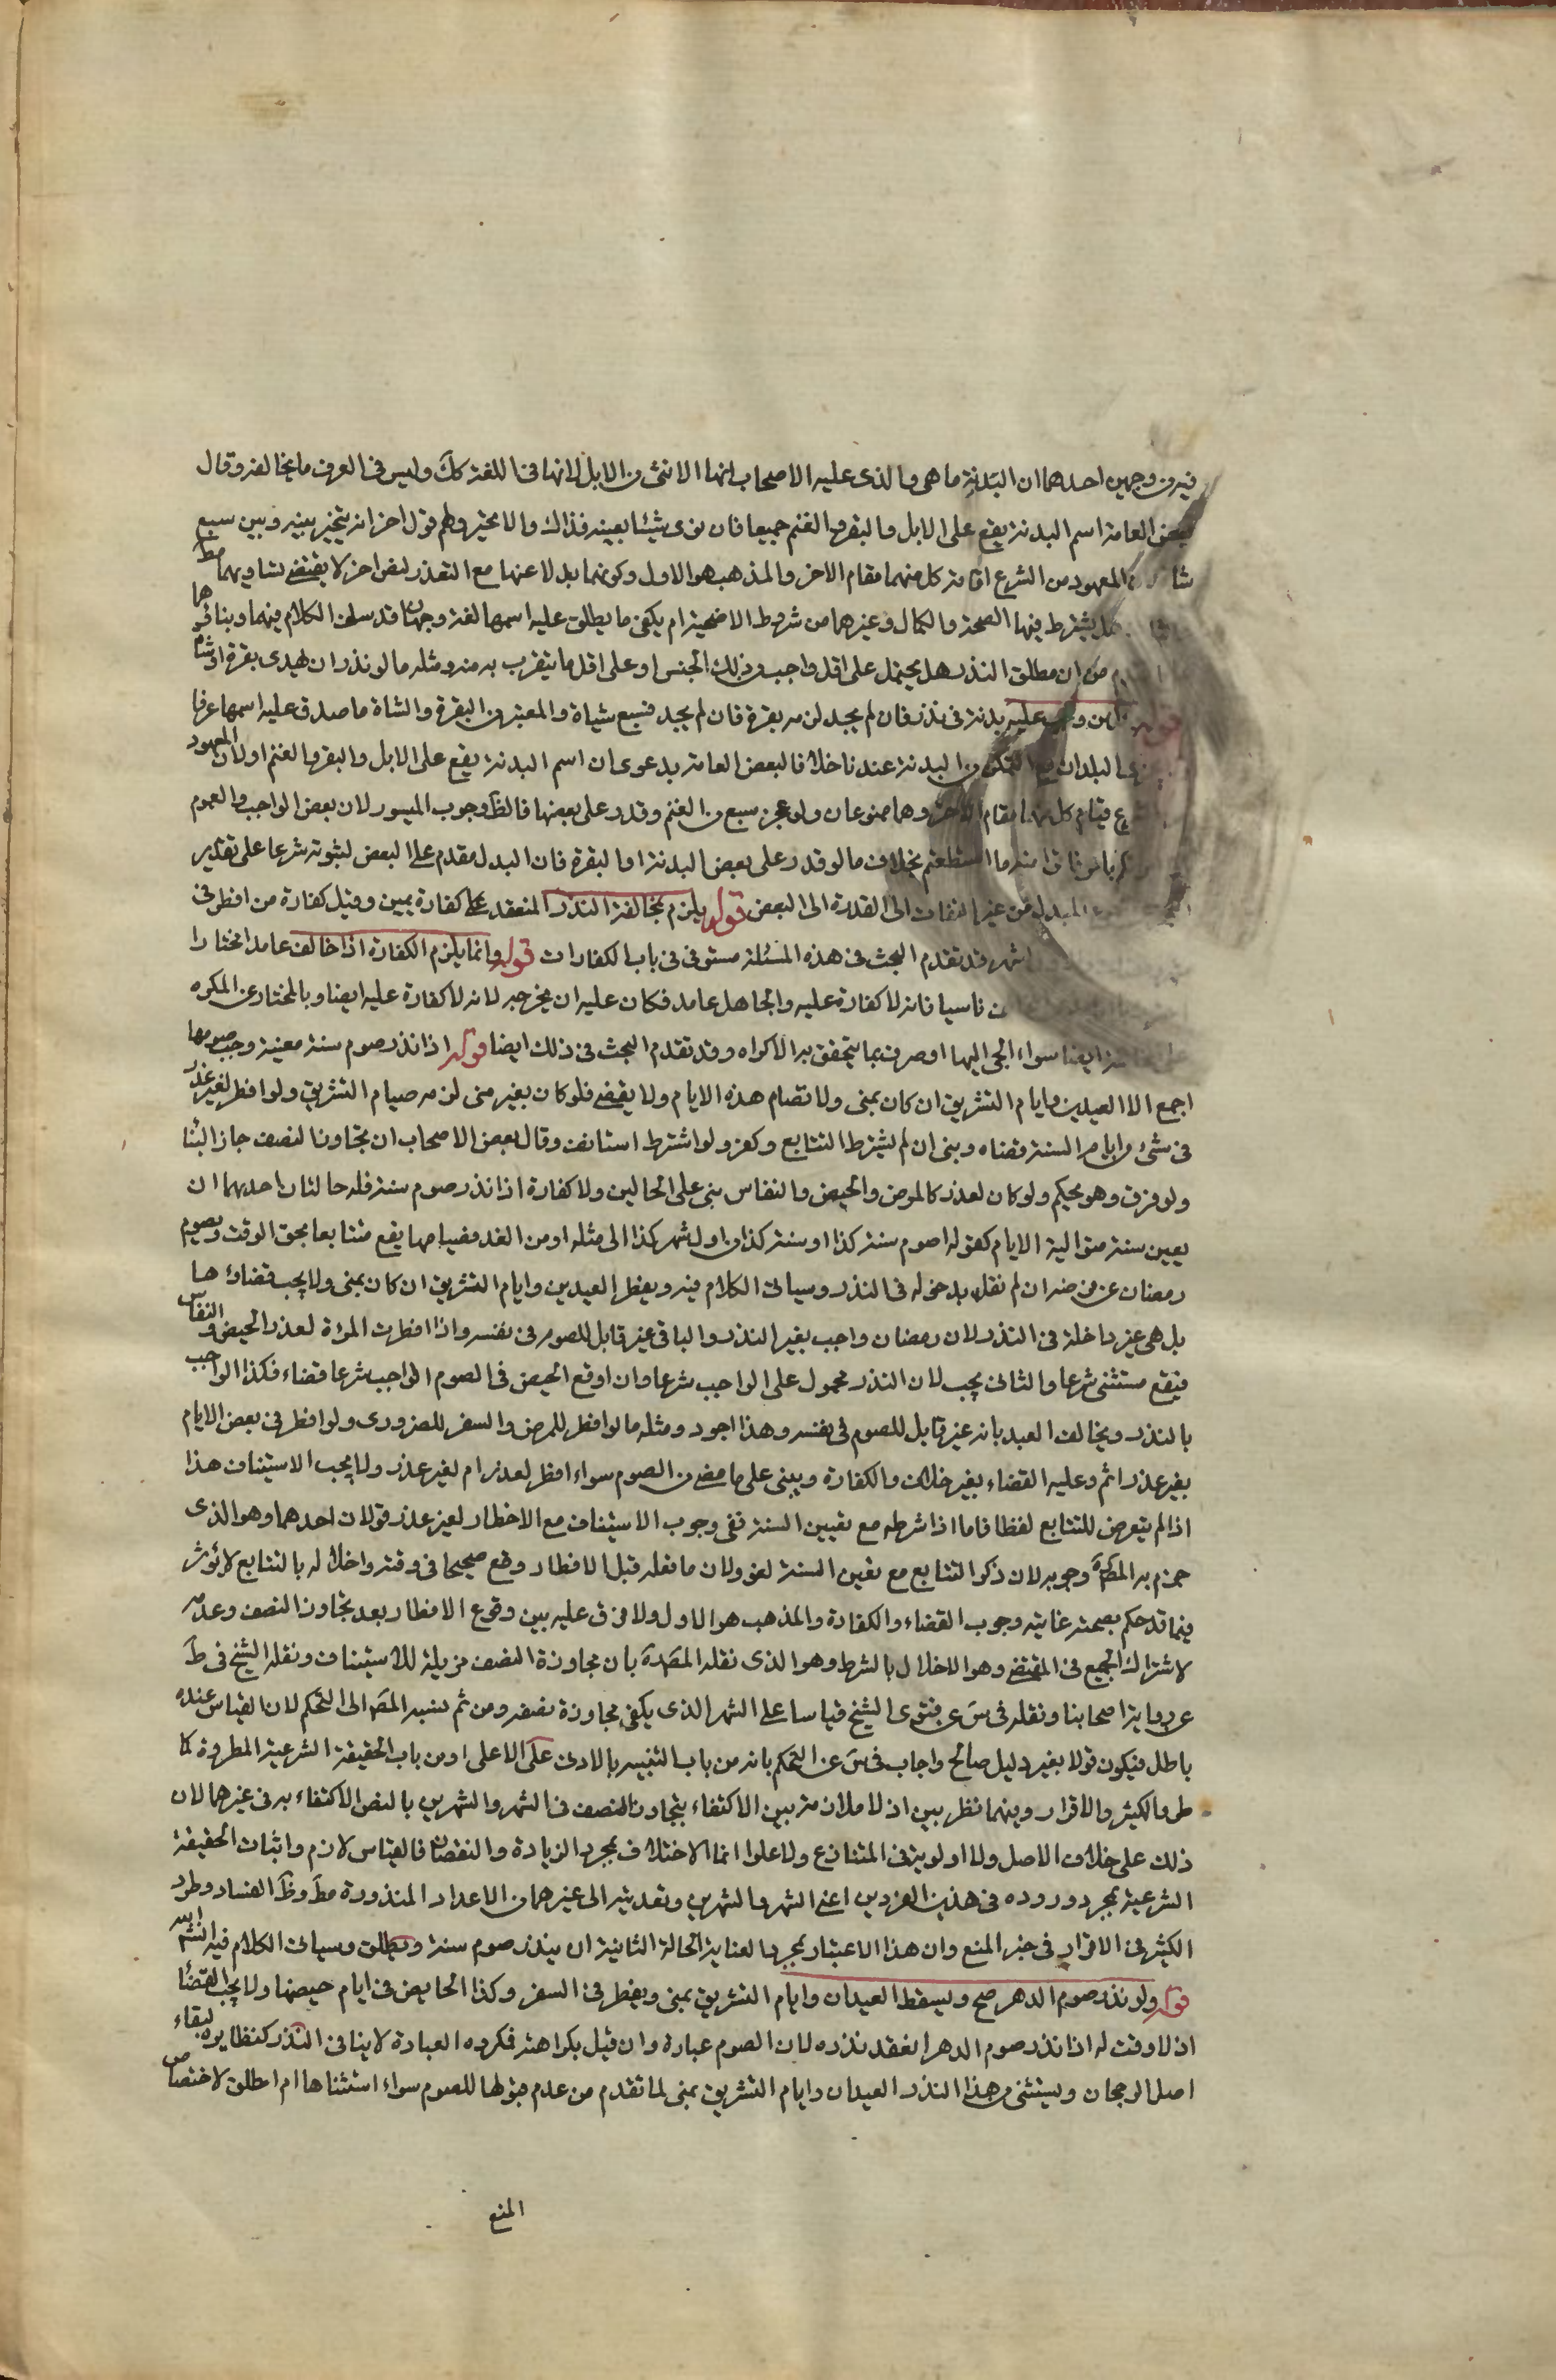 فيه من وجهين احدهما ان البدنة ما هي والذي عليه الاصحاب انها الانثى من الابل لانها في اللغة كك وليس في العرف ما يخالفه وقال
بعض العامة اسم البدنة يقع على الابل والبقر والغنم جميعا فان نوى شيئا بعينه فذاك والا تخير ولهم قول اخر انه يتخير بينه وبين سبع
شياه المعهود من الشرع اقامة كل منهما مقام الاخر والمذهب هو الاول وكونهما بدلا عنها مع التعذر لنص اخر لا يقتضي تساويهما مط
هل يشترط فيها الصحة والكمال وغيرهما من شروط الاضحية ام يكفي ما يطلق عليه اسمها لغة وجهان قد سلف الكلام فيهما وبناؤهما
من ان مطلق النذر هل يحمل على اقل واجب من ذلك الجنس او على اقل ما يتقرب به منه ومثله ما لو نذر ان يهدي بقرة او شاة
قوله من وجب عليه بدنة في نذر فان لم يجد لزمه بقرة فان لم يجد فسبع شياة والمعتبر من البقرة والشاة ما صدق عليه اسمها عرفا
البلدان مع التمكن من البدنة عندنا خلافا لبعض العامة بدعوى ان اسم البدنة يقع على الابل والبقر والغنم اولان المعهود
قيام كل منها مقام الاخر وهما ممنوعان ولو عجز عن سبع من الغنم وقدر على بعضها فالظ وجوب الميسور لان بعض الواجب والعموم
فاتوا منه ما استطعتم بخلاف ما لو قدر على بعض البدنة او البقرة فان البدل مقدم على البعض لثبوته شرعا على تقدير
المبدل من غير التفات الى القدرة الى البعض قوله يلزم بمخالفة النذر المنعقد على كفارة يمين وقيل كفارة من افطر في
اشهر قد تقدم البحث في هذه المسئلة مستوفى في باب الكفارات قوله وانما يلزم الكفارة اذا خالف عامدا مختارا
ناسيا فانه لا كفارة عليه والجاهل عامد فكان عليه ان يخرجه لانه لا كفارة عليه ايضا وبالمختار عن المكره
ايضا سواء الجئ اليها او صرف بما يتحقق به الاكراه وقد تقدم البحث في ذلك ايضا قوله اذا نذر صوم سنة معينة وجب صومها
اجمع الا العيدين وايام التشريق ان كان بمنى ولا تصام هذه الايام ولا يقضى فلو كان بغير منى لزمه صيام التشريق ولو افطر لغير عذر
في شئ من ايام السنة قضاه وبنى ان لم يشترط التتابع وكفر ولو اشترط استانف وقال بعض الاصحاب ان تجاوز النصف جاز البناء
ولو فرق وهو تحكم ولو كان لعذر كالمرض والحيض والنفاس بنى على الحالين ولا كفارة اذا نذر صوم سنة فله حالتان احديهما ان
يعين سنة متوالية الايام كقوله اصوم سنة كذا او سنة كذا من اول شهر كذا الى مثله او من الغد فصيامها يقع متتابعا بحق الوقت ويصوم
رمضان عن فرضه ان لم نقل بدخوله في النذر وسيأتى الكلام فيه ويفطر العيدين وايام التشريق ان كان بمنى ولا يجب قضاؤها
بل هي غير داخلة في النذر لان رمضان واجب بغير النذر والباقي غير قابل للصوم في نفسه واذا افطرت المرأة لعذر الحيض والنفاس
فيقع مستثنى شرعا والثاني يجب لان النذر محمول على الواجب شرعا وان اوقع الحيض في الصوم الواجب شرعا قضاء فكذا الواجب
بالنذر ويخالف العيد بانه غير قابل للصوم في نفسه وهذا اجود ومثله ما لو افطر للمرض والسفر للضروري ولو افطر في بعض الايام
بغير عذر اثم وعليه القضاء بغير خلاف والكفارة ويبنى على ما مضى من الصوم سواء افطر لعذر ام لغير عذر ولا يجب الاستيناف هذا
اذا لم يتعرض للتتابع لفظا فاما اذا شرطه مع تعيين السنة ففي وجوب الاستيناف مع الافطار لغير عذر قولان احدهما وهو الذى
جزم به المص وجوبه لان ذكر التتابع مع تعين السنة لغو ولان ما فعله قبل الافطار وقع صحيحا في وقته واخلاله بالتتابع لا يؤثر
فيما قد حكم بصحته غايته وجوب القضاء والكفارة والمذهب هو الاول ولا فرق عليه بين وقوع الافطار بعد تجاوز النصف وعدمه
لاشتراك الجميع في المقتضى وهو الاخلال بالشرط وهو الذى نقله المص بان مجاوزة النصف مزيلة للاستيناف ونقله الشيخ في ط
عن رواية اصحابنا ونقله في س عن فتوى الشيخ قياسا على الشهر الذى يكفي مجاوزة نصفه ومن ثم نسبه المص الى التحكم لان القياس عنده
باطل فيكون قولا بغير دليل صالح واجاب في س عن التحكم بانه من باب التنبيه بالادنى على الاعلى او من باب الحقيقة الشرعية المطردة كما
طرد الكثير والاقرار وفيهما نظر بين اذ لا ملازمة بين الاكتفاء بتجاوز النصف في الشهر والشهرين بالنص الاكتفاء به في غيرهما لان
ذلك على خلاف الاصل ولا اولوية في المتنازع ولا علوا انما الاختلاف بمجرد الزيادة والنقصان فالقياس لازم واثبات الحقيقة
الشرعية بمجرد وروده في هذين الفردين اعني الشهر والشهرين وتعديته الى غيرهما من الاعداد المنذورة مط وظ الفساد وطرد
الكثير في الاقرار في حيز المنع وان هذا الاعتبار بمجرد العناية الحالة الثانية ان ينذر صوم سنة ويطلق وسيأتى الكلام فيه انشم الله
قوله ولو نذر صوم الدهر صح ويسقط العيدان وايام التشريق بمنى ويفطر في السفر وكذا الحايض في ايام حيضها ولا يجب القضاء
اذ لا وقت له اذا نذر صوم الدهر انعقد نذره لان الصوم عبادة وان قيل بكراهته فمكروه العبادة لا ينافي النذر كنظايره لبقاء
اصل الرجحان ويستثنى من هذا النذر العيدان وايام التشريق بمنى لما تقدم من عدم قبولها للصوم سواء استثناها ام اطلق لاختصاص
المنع